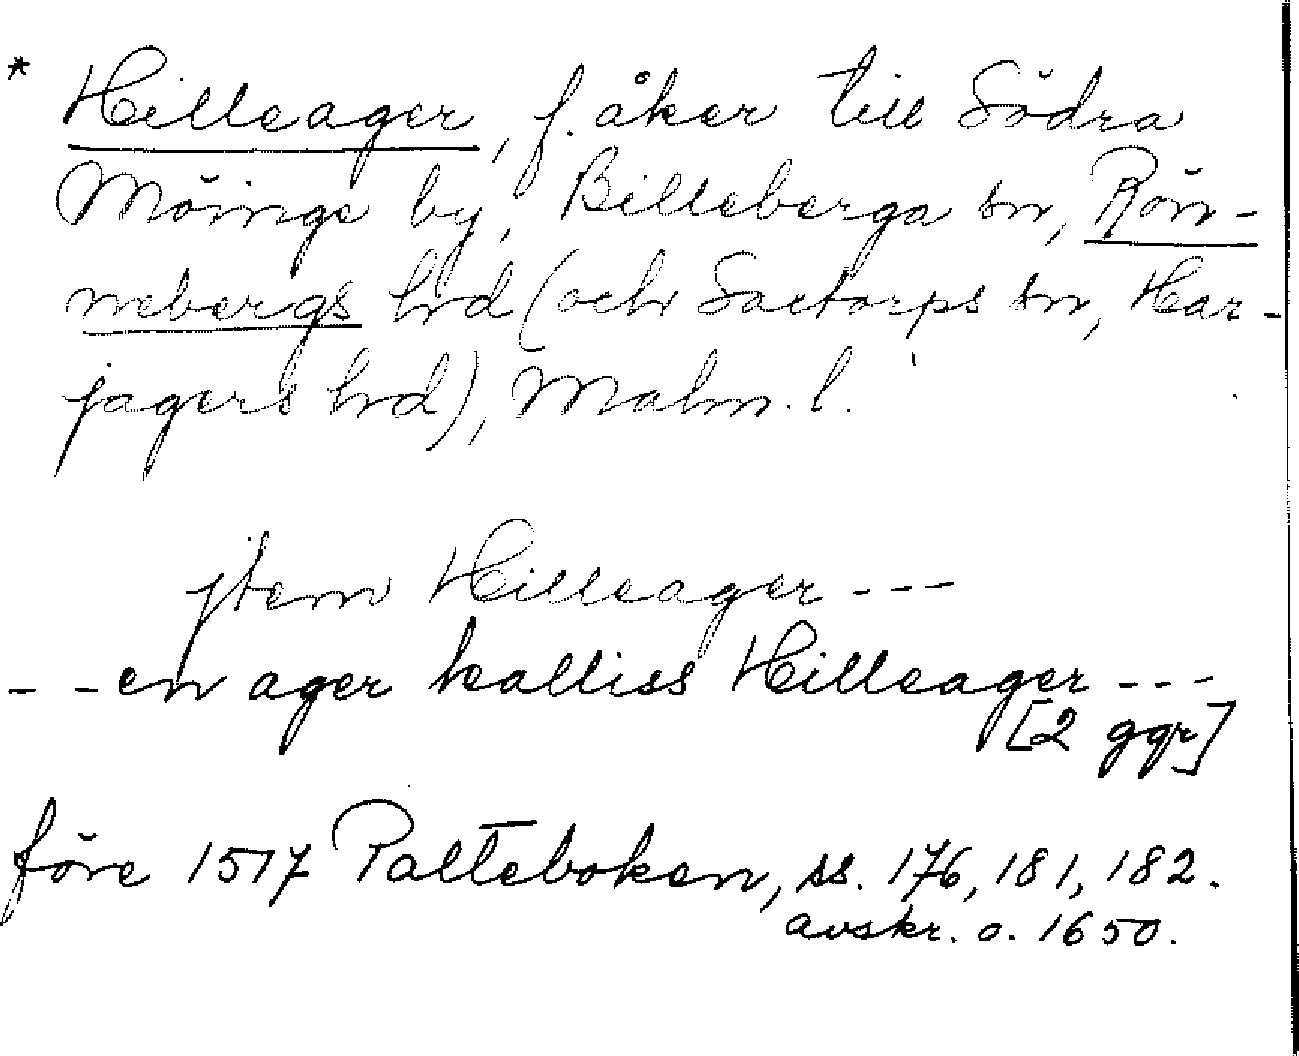 * Hilleager, f. åker till Södra
Möinge by, Billeberga sn, Rön-
nebergs hd (och Saxtorps sn, Har-
jagers hd), Malm. l.
jtem Hilleager ---
- - en ager kalliss Hilleager ---
[2 ggr]
före 1517 Palteboken, ss. 176, 181, 182.
avskr. o. 1650.